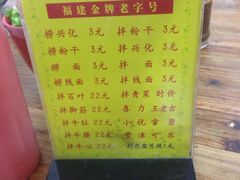 福建金牌老字号
捞兴化 3元 拌兴化 3元
捞粉干 3元 拌粉干 3元
捞面 3元 拌面 3元
捞线面 3元 拌线面 3元
拌百叶 22元 拌青菜 时价
拌脚筋 22元 喜力 王老吉
拌牛肚 22元 小优 雪碧
拌牛腰 22元 雪津 可乐
拌牛心 22元 打包盒另收1元